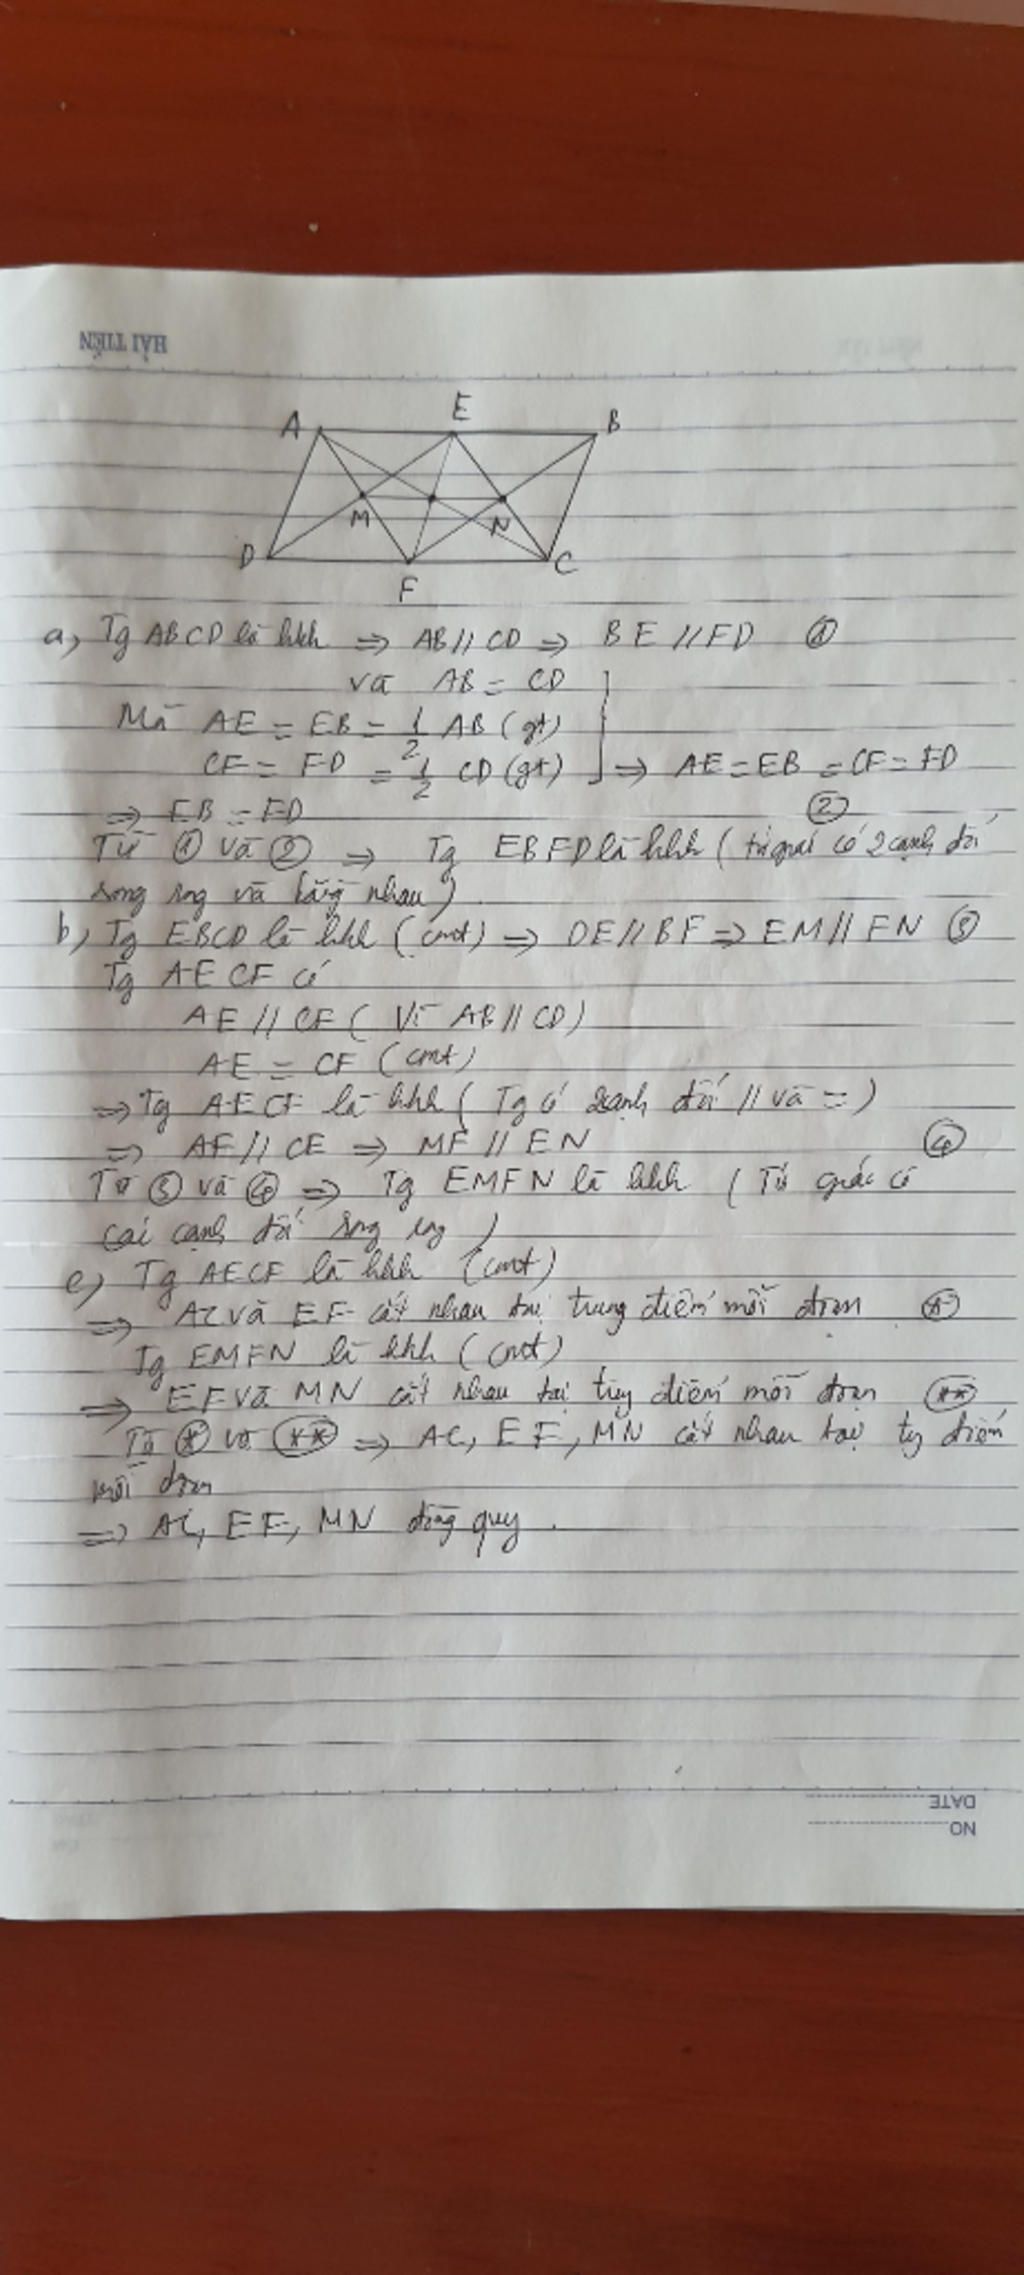 HẢI TIẾN
A E B
M N
D F C
a, Tg ABCD là hbh => AB // CD => BE // FD ①
và AB = CD
Mà AE = EB = 1/2 AB (gt)
CF = FD = 1/2 CD (gt) => AE = EB = CF = FD
=> EB = FD ②
Từ ① và ② => Tg EBFD là hbh ( tứ giác có 2 cạnh đối
song sog và bằng nhau )
b, Tg EBCD là hbh (cmt) => DE // BF => EM // FN ③
Tg AECF có
AE // CF ( Vì AB // CD )
AE = CF (cmt)
=> Tg AECF là hbh ( Tg có 2 cạnh đối // và = )
=> AF // CE => MF // EN ④
Từ ③ và ④ => Tg EMFN là hbh ( Tứ giác có
các cạnh đối song sog )
c, Tg AECF là hbh (cmt)
=> AC và EF cắt nhau tại trung điểm mỗi đoạn (*)
Tg EMFN là hbh (cmt)
=> EF và MN cắt nhau tại trug điểm mỗi đoạn (**)
Từ (*) và (**) => AC, EF, MN cắt nhau tại tg điểm
mỗi đoạn
=> AC, EF, MN đồng quy .
DATE
NO